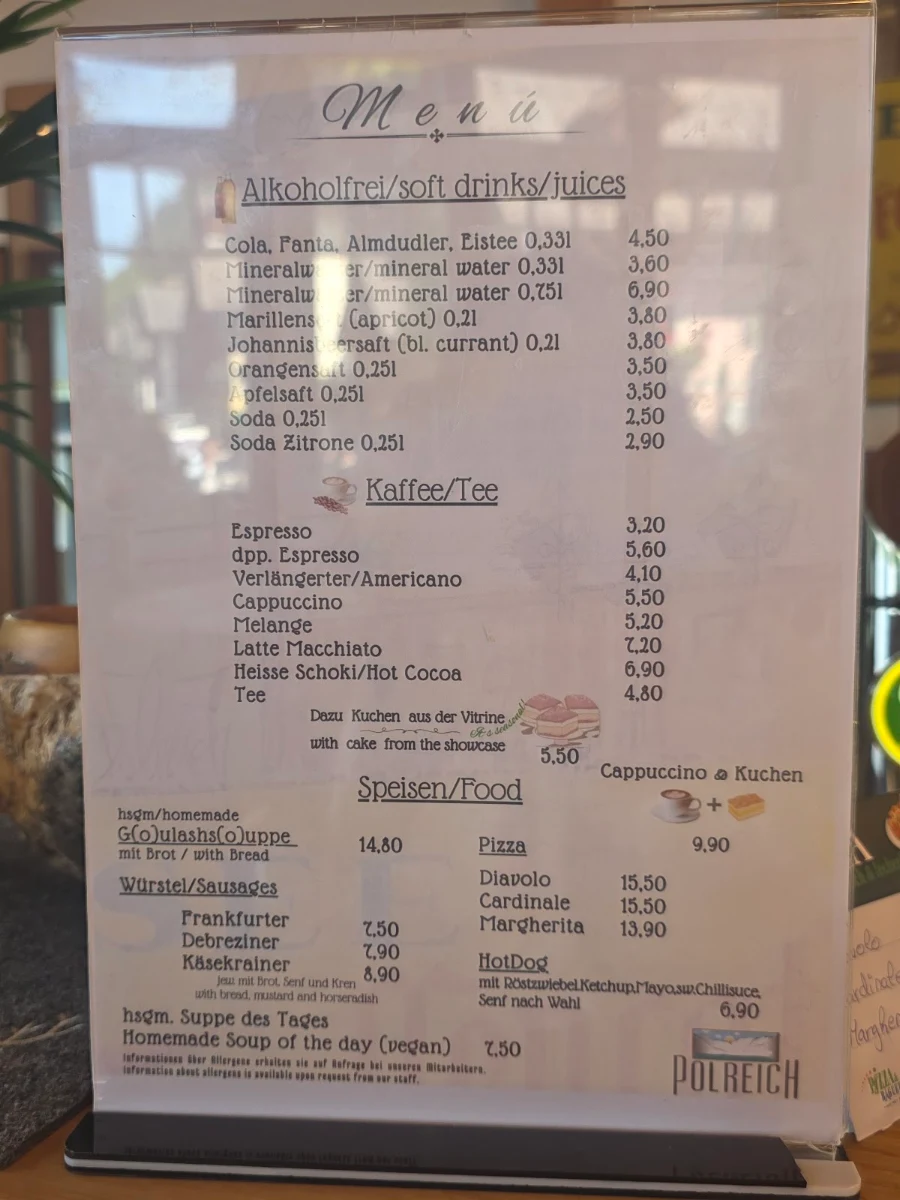 Menú
Alkoholfrei/soft drinks/juices
Cola, Fanta, Almdudler, Eistee 0,33l 4,50
Mineralwasser/mineral water 0,33l 3,60
Mineralwasser/mineral water 0,75l 6,90
Marillensaft (apricot) 0,2l 3,80
Johannisbeersaft (bl. currant) 0,2l 3,80
Orangensaft 0,25l 3,50
Apfelsaft 0,25l 3,50
Soda 0,25l 2,50
Soda Zitrone 0,25l 2,90
Kaffee/Tee
Espresso 3,20
dpp. Espresso 5,60
Verlängerter/Americano 4,10
Cappuccino 5,50
Melange 5,20
Latte Macchiato 7,20
Heisse Schoki/Hot Cocoa 6,90
Tee 4,80
Dazu Kuchen aus der Vitrine
it's seasonal!
with cake from the showcase 5,50
Cappuccino & Kuchen
+
9,90
Speisen/Food
hsgm/homemade
G(o)ulashs(o)uppe 14,80
mit Brot / with Bread
Würstel/Sausages
Frankfurter 7,50
Debreziner 7,90
Käsekrainer 8,90
jew. mit Brot, Senf und Kren
with bread, mustard and horseradish
hsgm. Suppe des Tages
Homemade Soup of the day (vegan) 7,50
Informationen über Allergene erhalten sie auf Anfrage bei unseren Mitarbeitern.
information about allergens is available upon request from our staff.
Pizza
Diavolo 15,50
Cardinale 15,50
Margherita 13,90
HotDog
mit Röstzwiebel,Ketchup,Mayo,sw.Chillisuce,
Senf nach Wahl
6,90
POLREICH